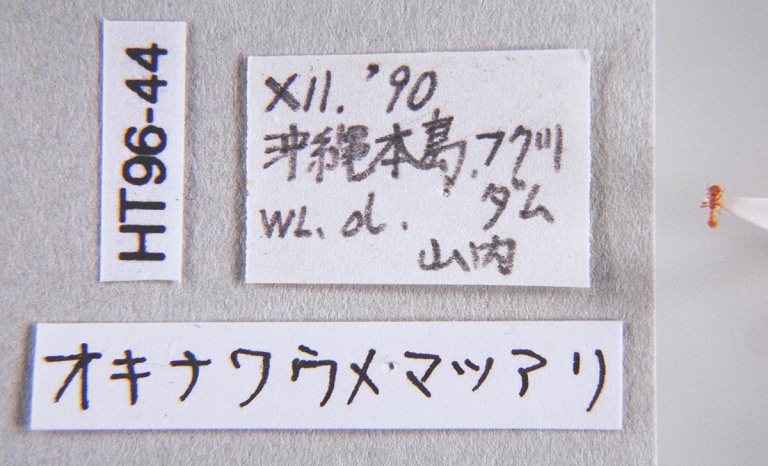 HT96-44
XII. '90
沖縄本島、フクジ
WL. d. ダム
山内
オキナワウメマツアリ